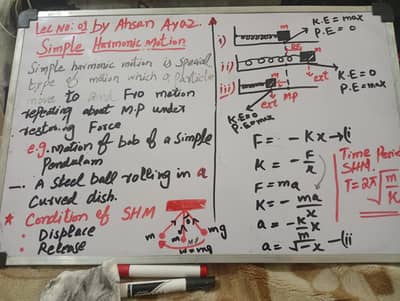 Lec No: 01 by Ahsan Ayaz..
Simple Harmonic Motion
Simple harmonic motion is special
type of motion which a particle
move to and Fro motion
repeating about M.P under
restoring Force
e.g. motion of bob of a simple
Pendalam
A steel ball rolling in a
curved dish.
* Condition of SHM
: Displace
: Release
m m m
M.P
w = mg
i) m
K.E = max
P.E = 0
ii) m
ext
K.E = 0
P.E = max
iii) m
ext MP
K.E = 0
P.E = max
F = - Kx → (i
K = - F/x
F = ma
K = - ma/x
a = - K/m x
a = √-x — (ii
Time Period
SHM.
T = 2π √m/K